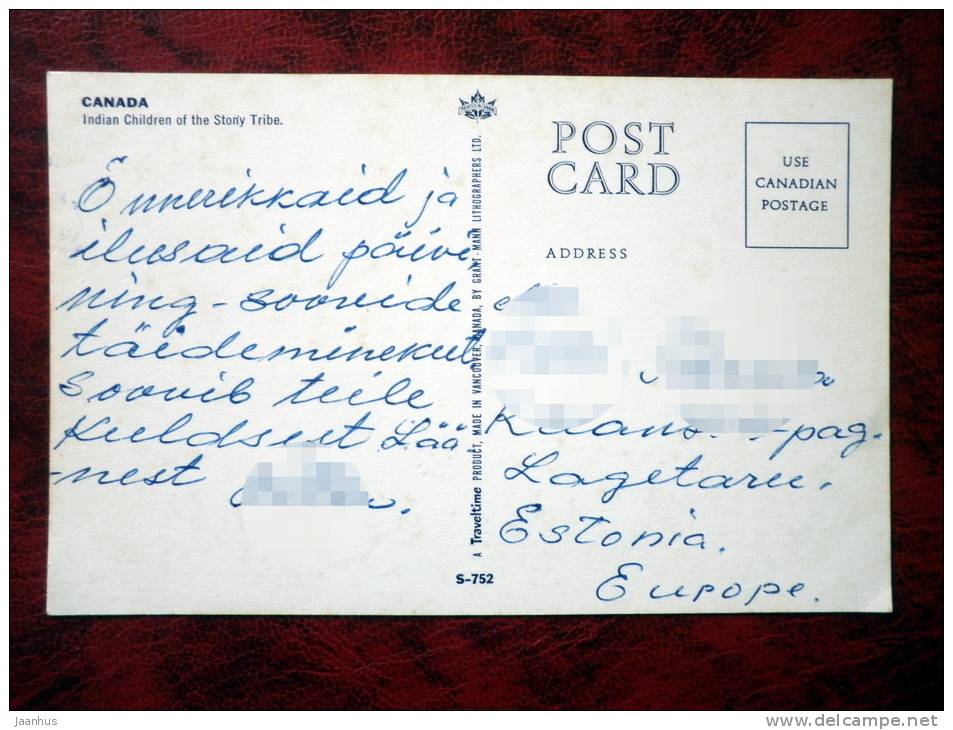 CANADA
Indian Children of the Stony Tribe.
Õnnerikkaid ja
ilusaid päivi
ning - soovide
täideminekut
Soovib teile
Kuldsest Lää
-nest
PRINTED IN CANADA
A Traveltime PRODUCT, MADE IN VANCOUVER, CANADA, BY GRANT-MANN LITHOGRAPHERS LTD.
S-752
POST
CARD
USE
CANADIAN
POSTAGE
ADDRESS
-pag.
Lagetaru.
Estonia.
Europe.
Jaanhus
www.delcampe.net